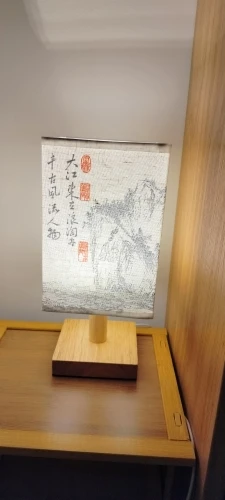 大江东去浪淘尽
千古风流人物